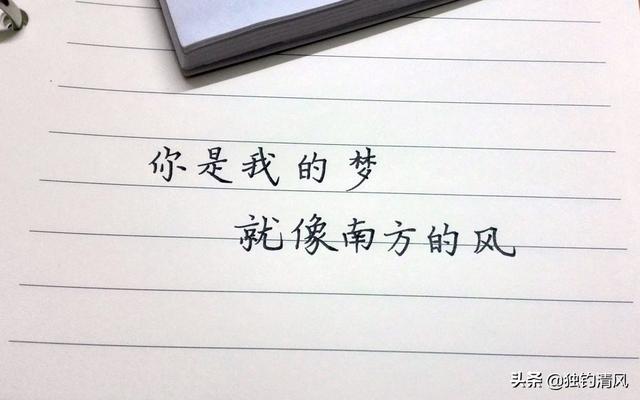 你是我的梦
就像南方的风
头条 @独钓清风